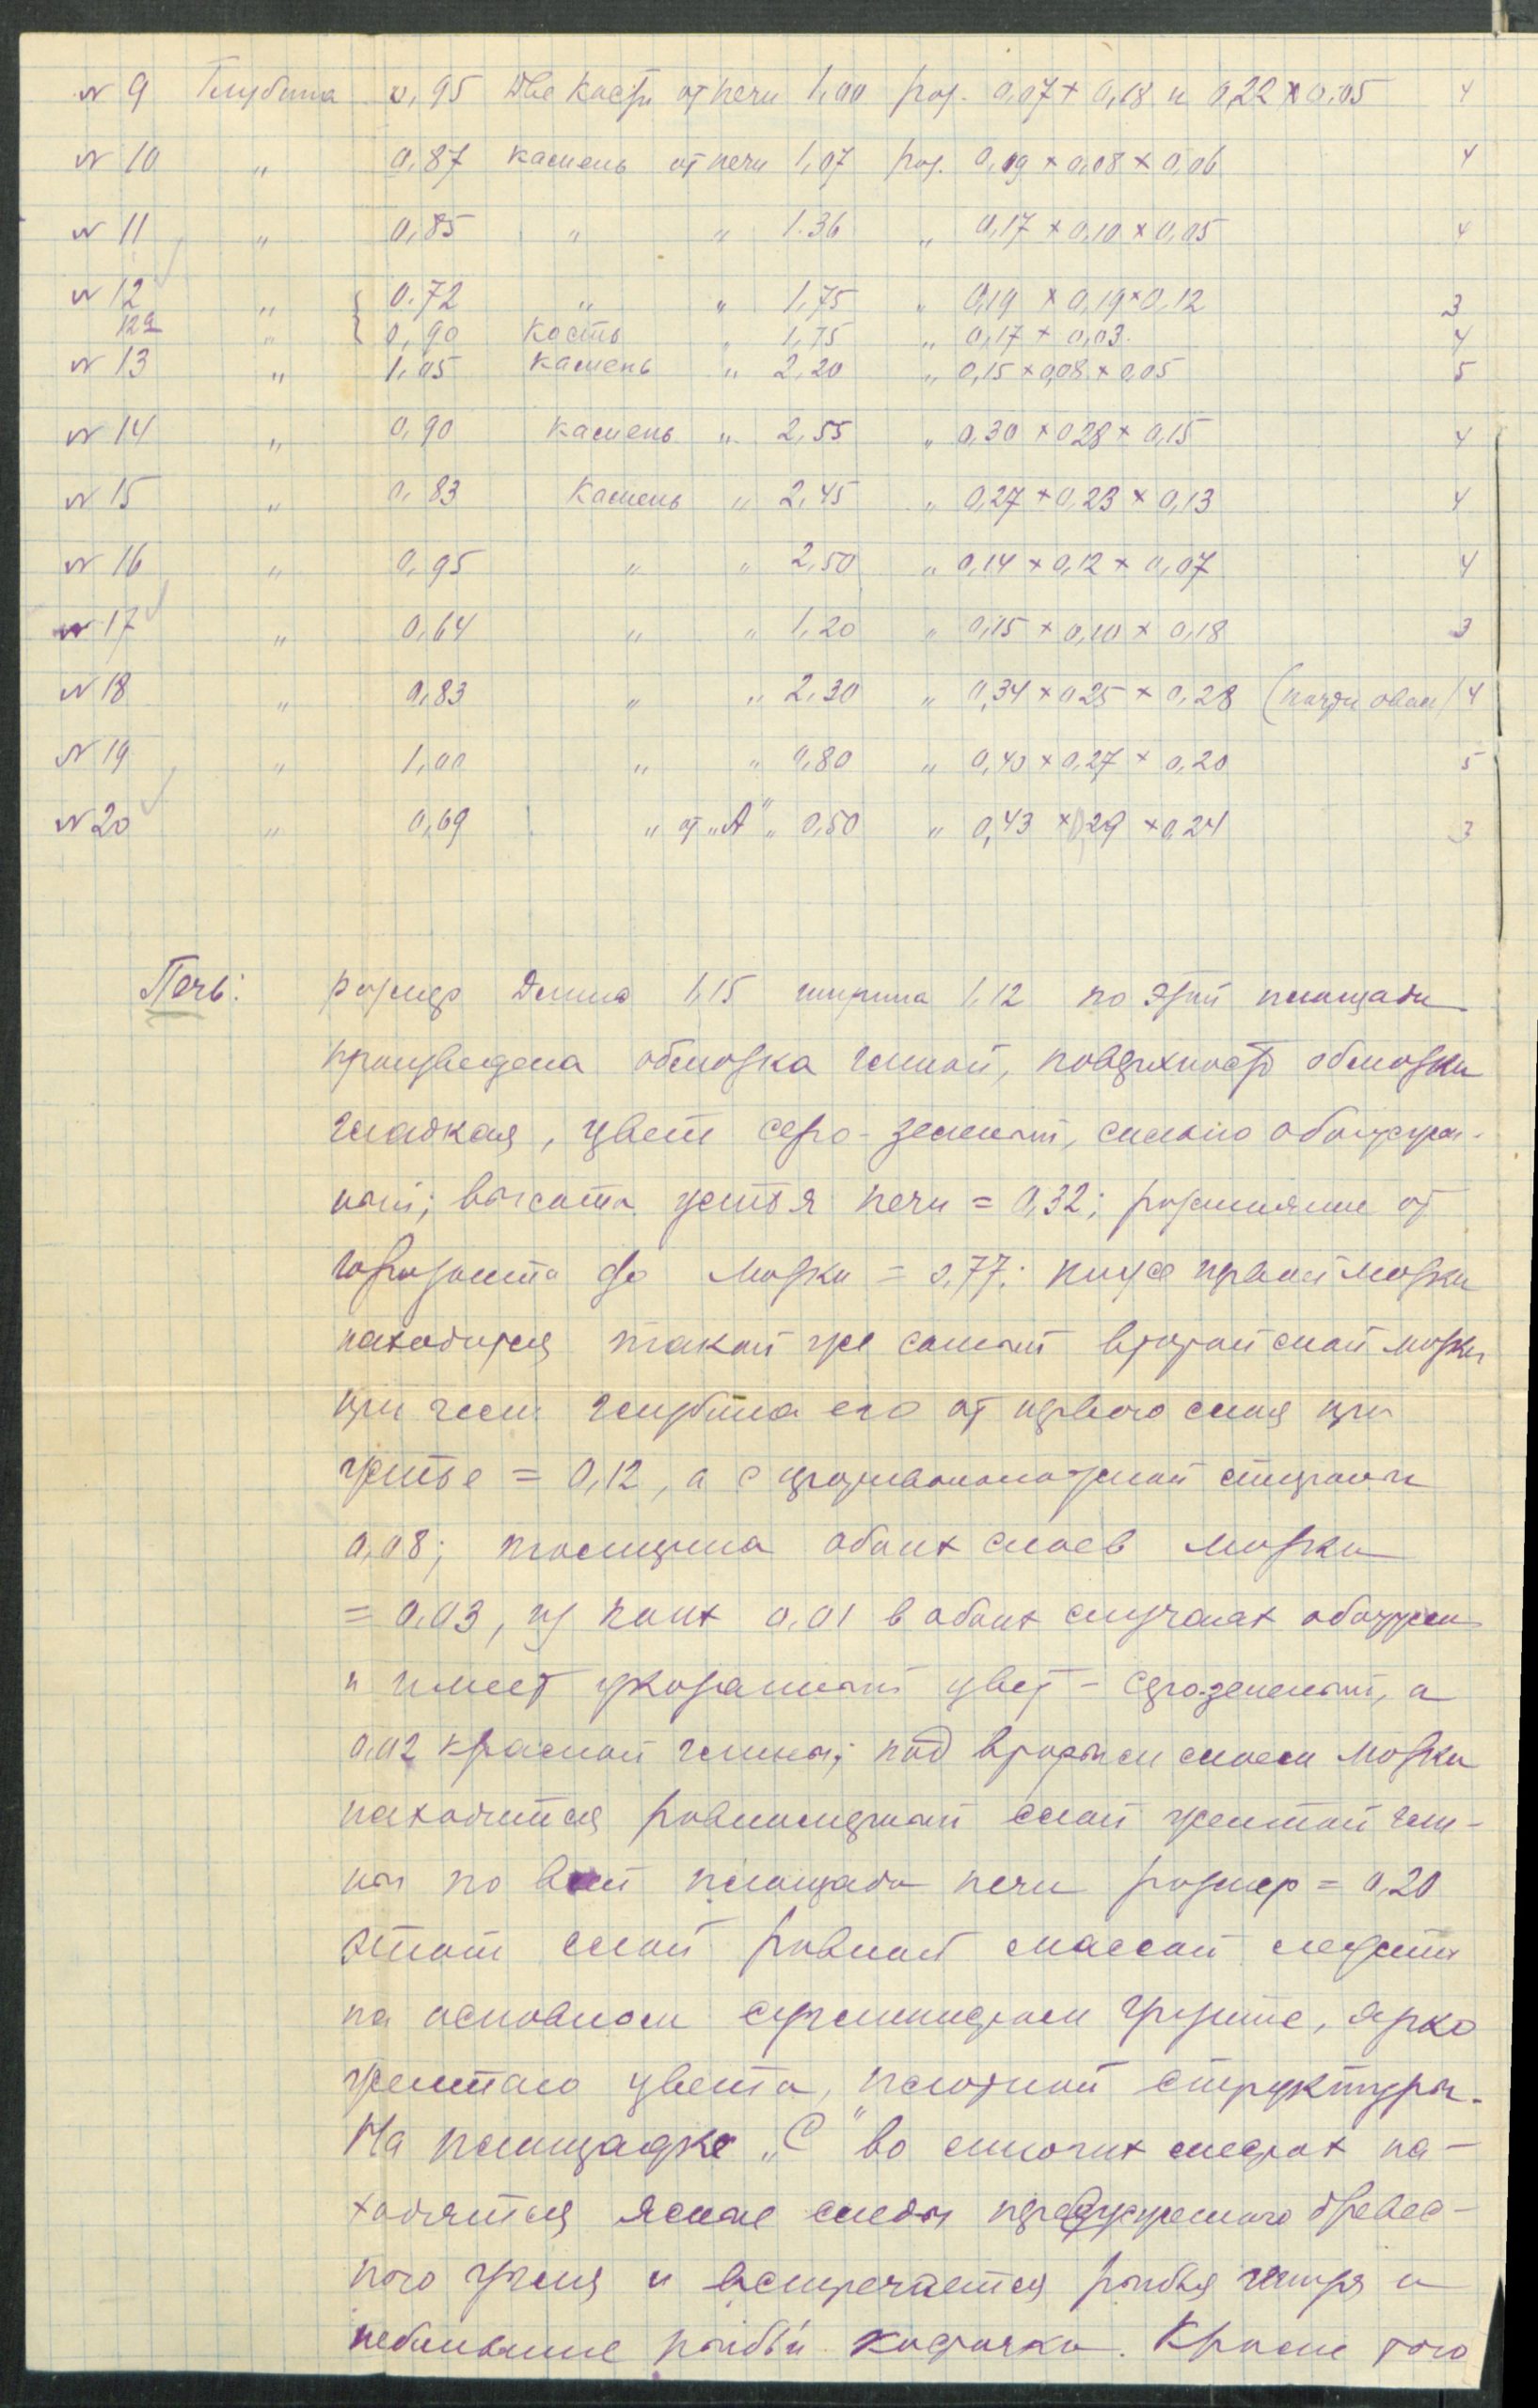 № 9 Глубина 0,95 Две кости от печи 1,00 раз. 0,07 × 0,18 и 0,22 × 0,05 4
№ 10 „ 0,87 камень от печи 1,07 раз. 0,09 × 0,08 × 0,06 4
№ 11 „ 0,85 „ „ 1.36 „ 0,17 × 0,10 × 0,05 4
№ 12 „ { 0.72 „ „ 1,75 „ 0,19 × 0,19 × 0,12 3
12а „ 0,90 Кость „ 1,75 „ 0,17 × 0,03. 4
№ 13 „ 1,05 камень „ 2,20 „ 0,15 × 0,08 × 0,05 5
№ 14 „ 0,90 камень „ 2,55 „ 0,30 × 0,28 × 0,15 4
№ 15 „ 0,83 Камень „ 2,45 „ 0,27 × 0,23 × 0,13 4
№ 16 „ 0,95 „ „ 2,50 „ 0,14 × 0,12 × 0,07 4
№ 17 „ 0,64 „ „ 1,20 „ 0,15 × 0,10 × 0,18 3
№ 18 „ 0,83 „ „ 2,30 „ 0,34 × 0,25 × 0,28 (почти овал) 4
№ 19 „ 1,00 „ „ 0,80 „ 0,40 × 0,27 × 0,20 5
№ 20 „ 0,69 „ от „А" „ 0,50 „ 0,43 × 0,29 × 0,24 3
Печь: размер Длина 1,15 ширина 1,12 по этой площади
произведена обмозка глиной, поверхность обмозки
гладкая, цвет серо-зеленый, сильно обожжен-
ный; высота устья печи = 0,32; расстояние от
горизонта до мозки = 0,77; ниже првой мозки
находится такой же самый второй слой мозки
при чем глубина его от первого слоя при
устье = 0,12, а с противоположной стороны
0,08; толщина обоих слоев мозки
= 0,03, из коих 0,01 в обоих случаях обожжен
и имеет указанный цвет - серозеленый, а
0,02 красной глины; под вторым слоем мозки
находится равномерный слой желтой гли-
ны по всей площади печи размер = 0,20
этот слой ровной массой лежит
на основном грунте, ярко
желтого цвета, плотной структуры.
На площадке „С" во многих местах на-
ходятся ясные следы пережженного древес-
ного угля и встречается рыбья чешуя и
небольшие рыбьи косточки. Кроме того